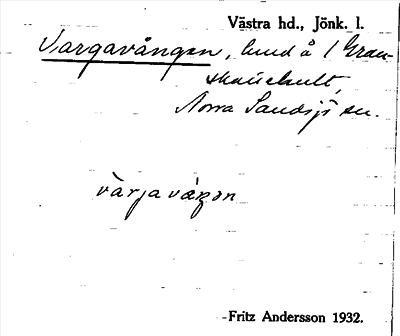 Västra hd., Jönk. l.
Vargavången, lund å 1 Gran-
skäckult,
Norra Sandsjö sn.
värjavåŋən
Fritz Andersson 1932.